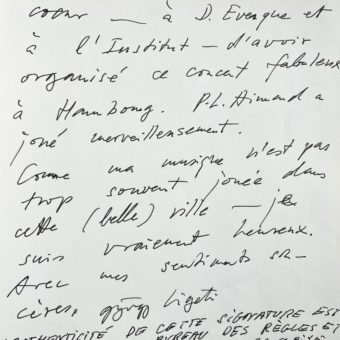 coeur — à D. Evesque et
à l'Institut — d'avoir
organisé ce concert fabuleux
à Hambourg. P.L. Aimard a
joué merveilleusement.
Comme ma musique n'est pas
trop souvent jouée dans
cette (belle) ville — je
suis vraiment heureux.
Avec mes sentiments sin-
cères, györgy Ligeti
AUTHENTICITÉ DE CETTE SIGNATURE EST
BUREAU DES RÈGLES ET